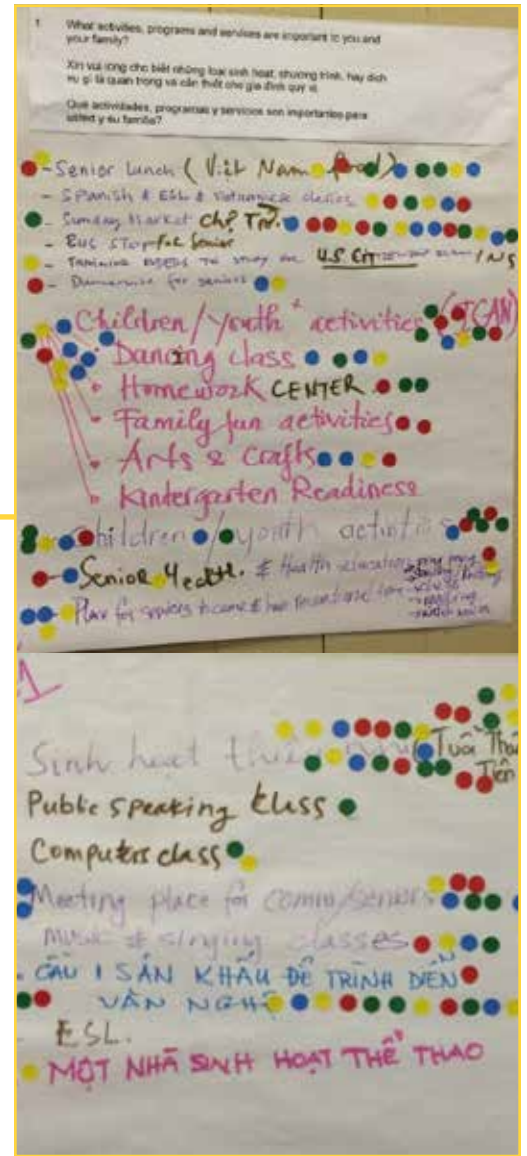 1. What activities, programs and services are important to you and
your family?
Xin vui lòng cho biết những loại sinh hoạt, chương trình, hay dịch
vụ gì là quan trọng và cần thiết cho gia đình quý vị.
Qué actividades, programas y servicios son importantes para
usted y su familia?
- Senior Lunch (Việt Nam food)
- Spanish & ESL & Vietnamese classes
- Sunday Market Chợ Trời
- Bus Stop for Senior
- Training to study for U.S. Citizen INS
- for seniors
Children/Youth activities (TCAN)
• Dancing class
• Homework CENTER
• Family fun activities
• Arts & Crafts
• Kindergarten Readiness
Children/youth activities
- Senior Health. & Health education
- Place for seniors to come & have
1
Sinh hoạt Tuổi
Public speaking class
Computers class
Meeting place for comm/seniors
Music & singing classes
- CẦU 1 SÂN KHẤU ĐỂ TRÌNH DIỄN
VĂN NGHỆ
- ESL.
MỘT NHÀ SINH HOẠT THỂ THAO